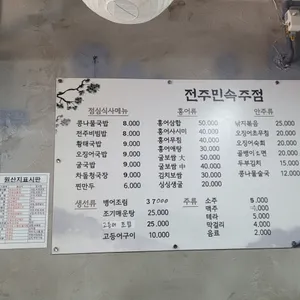 전주민속주점
점심식사메뉴
콩나물국밥 8,000
전주비빔밥 8,000
황태국밥 9,000
오징어국밥 9,000
굴국밥 9,000
차돌청국장 9,000
찐만두 6,000
홍어류
홍어삼합 50,000
홍어사시미 40,000
홍어무침 40,000
홍어매탕 30,000
굴보쌈 大 50,000
굴보쌈 中 40,000
김치보쌈 30,000
싱싱생굴 20,000
안주류
낙지볶음 25,000
오징어초무침 20,000
오징어숙회 20,000
골뱅이소면 20,000
두부김치 15,000
콩나물술국 12,000
생선류
병어조림 37000
조기매운탕 25,000
25,000
고등어구이 10,000
주류
소주 5,000
맥주
테라 5,000
막걸리 4,000
음료 2,000
원산지표시판